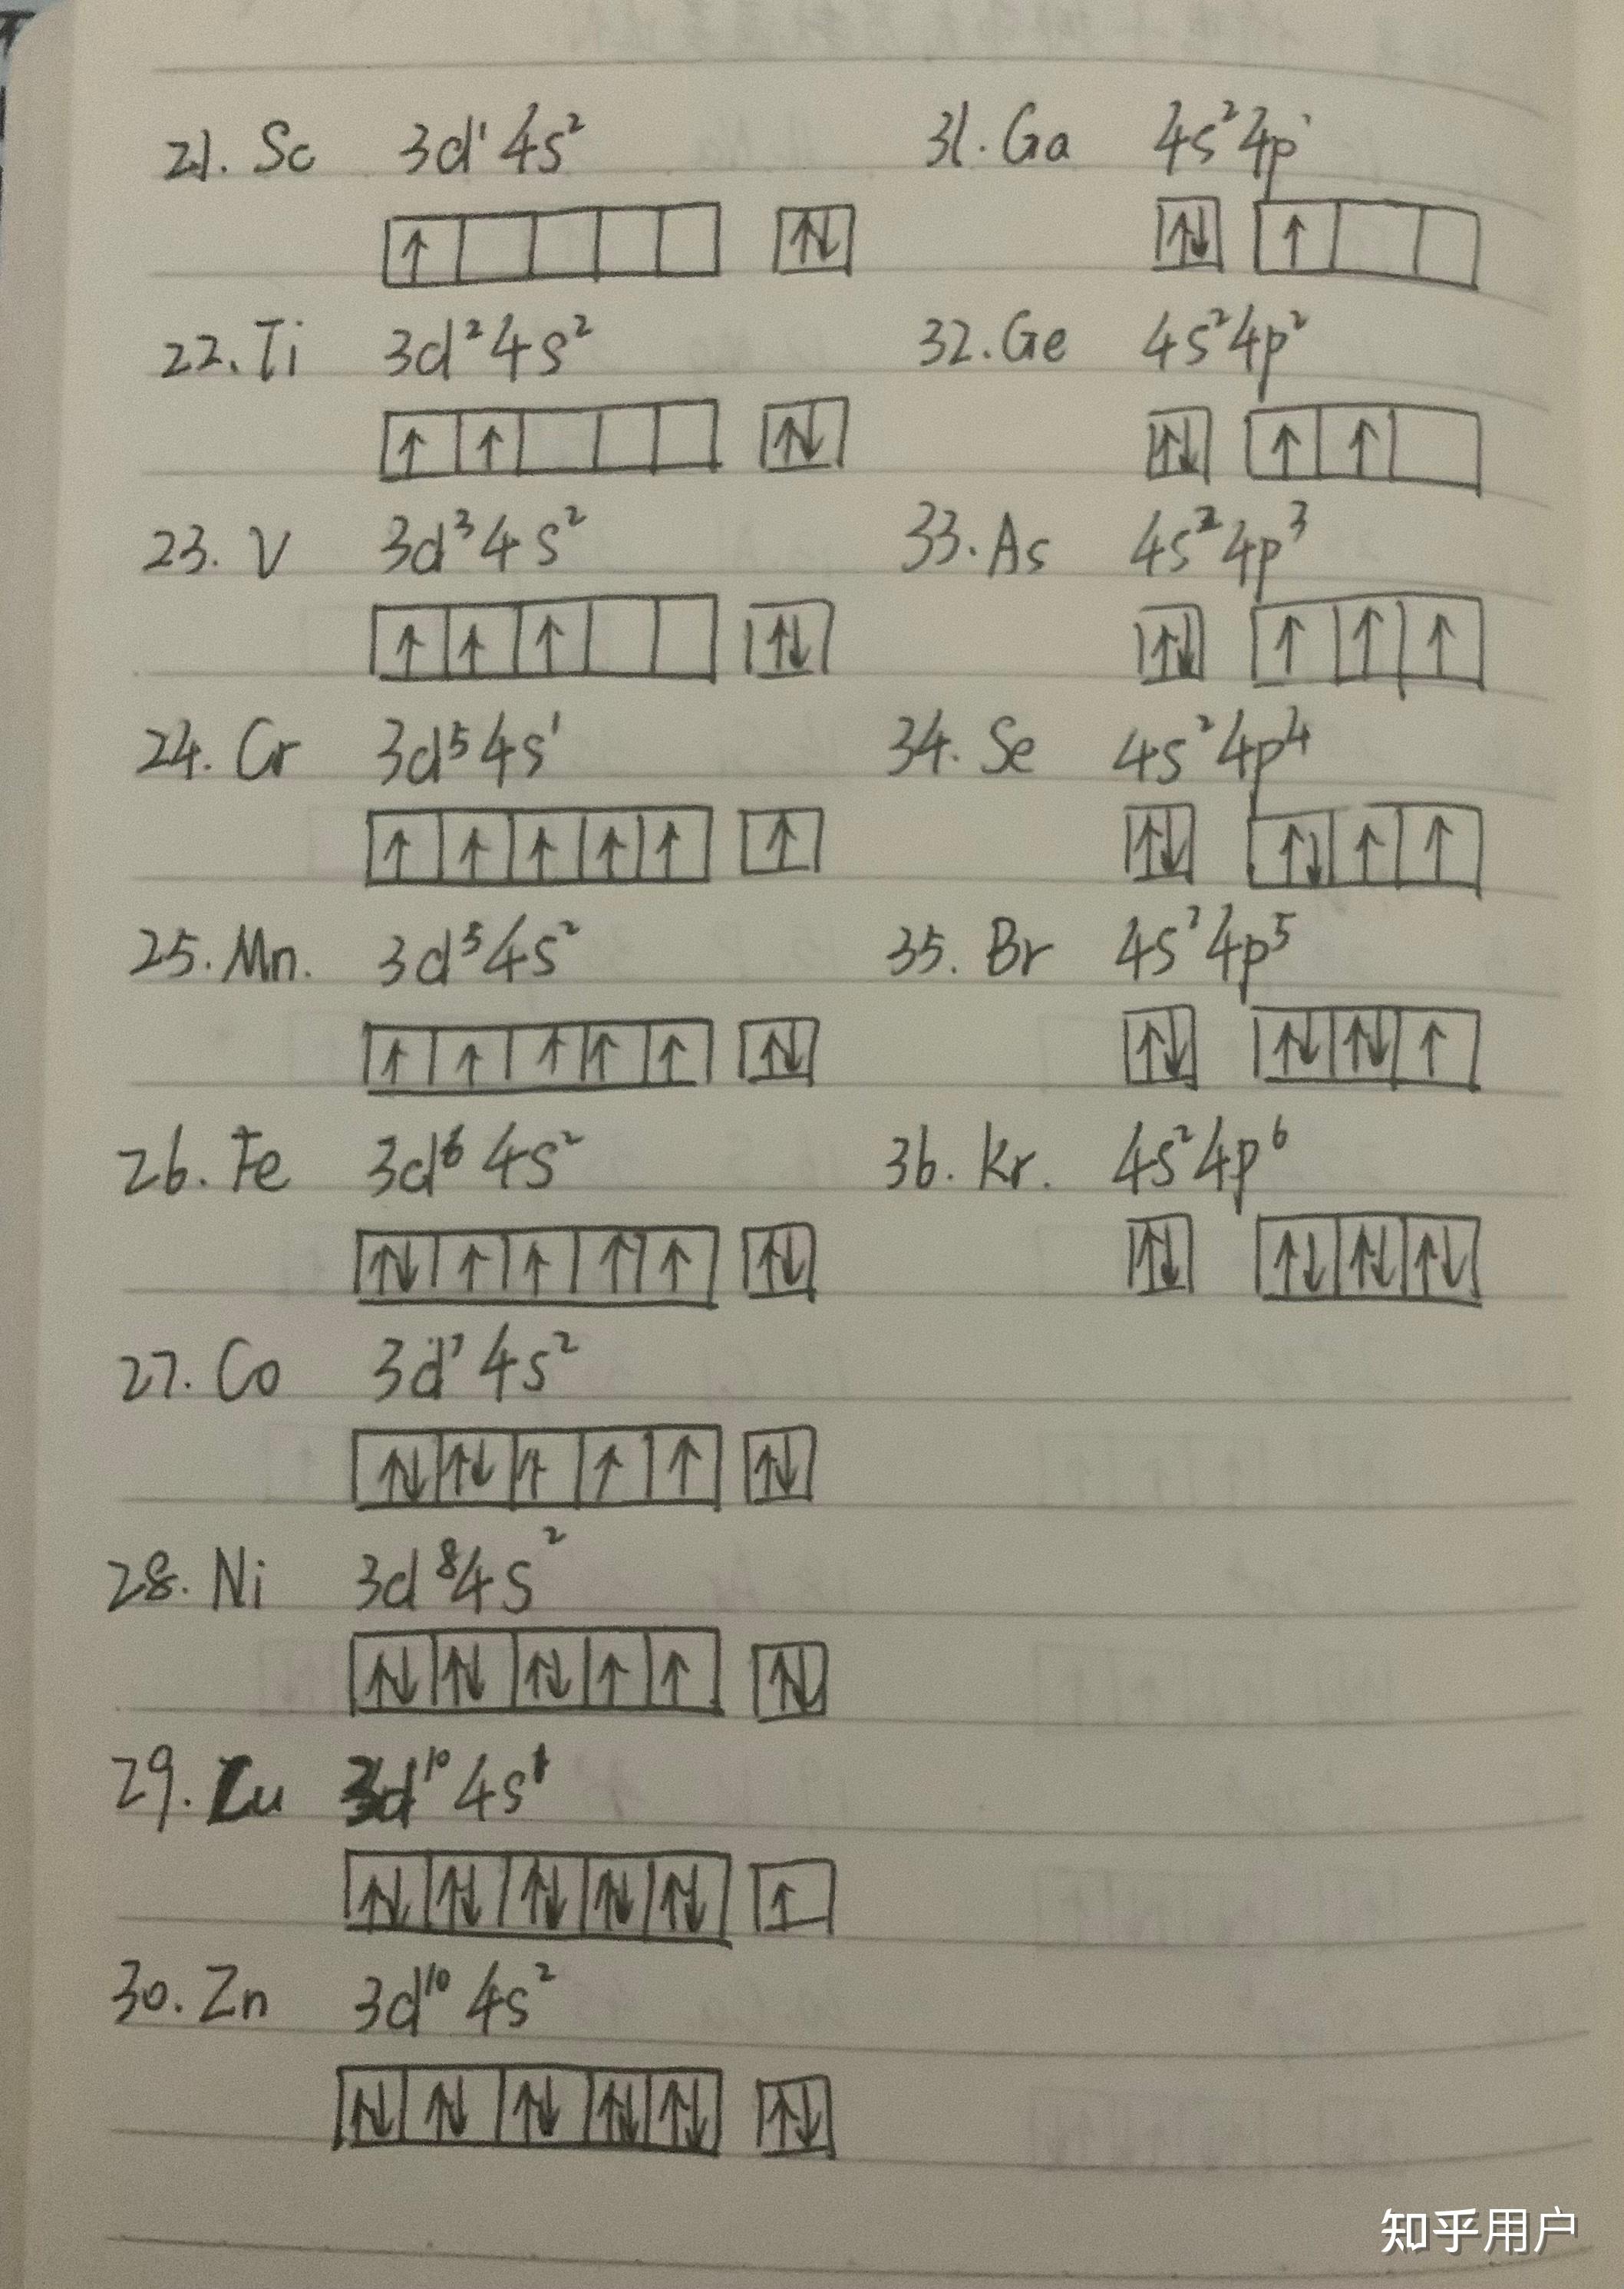 21. Sc 3d¹4s²
↑ ↑↓
22. Ti 3d²4s²
↑ ↑ ↑↓
23. V 3d³4s²
↑ ↑ ↑ ↑↓
24. Cr 3d⁵4s¹
↑ ↑ ↑ ↑ ↑ ↑
25. Mn. 3d⁵4s²
↑ ↑ ↑ ↑ ↑ ↑↓
26. Fe 3d⁶4s²
↑↓ ↑ ↑ ↑ ↑ ↑↓
27. Co 3d⁷4s²
↑↓ ↑↓ ↑ ↑ ↑ ↑↓
28. Ni 3d⁸4s²
↑↓ ↑↓ ↑↓ ↑ ↑ ↑↓
29. Cu 3d¹⁰4s¹
↑↓ ↑↓ ↑↓ ↑↓ ↑↓ ↑
30. Zn 3d¹⁰4s²
↑↓ ↑↓ ↑↓ ↑↓ ↑↓ ↑↓
31. Ga 4s²4p¹
↑↓ ↑
32. Ge 4s²4p²
↑↓ ↑ ↑
33. As 4s²4p³
↑↓ ↑ ↑ ↑
34. Se 4s²4p⁴
↑↓ ↑↓ ↑ ↑
35. Br 4s²4p⁵
↑↓ ↑↓ ↑↓ ↑
36. Kr. 4s²4p⁶
↑↓ ↑↓ ↑↓ ↑↓
知乎用户